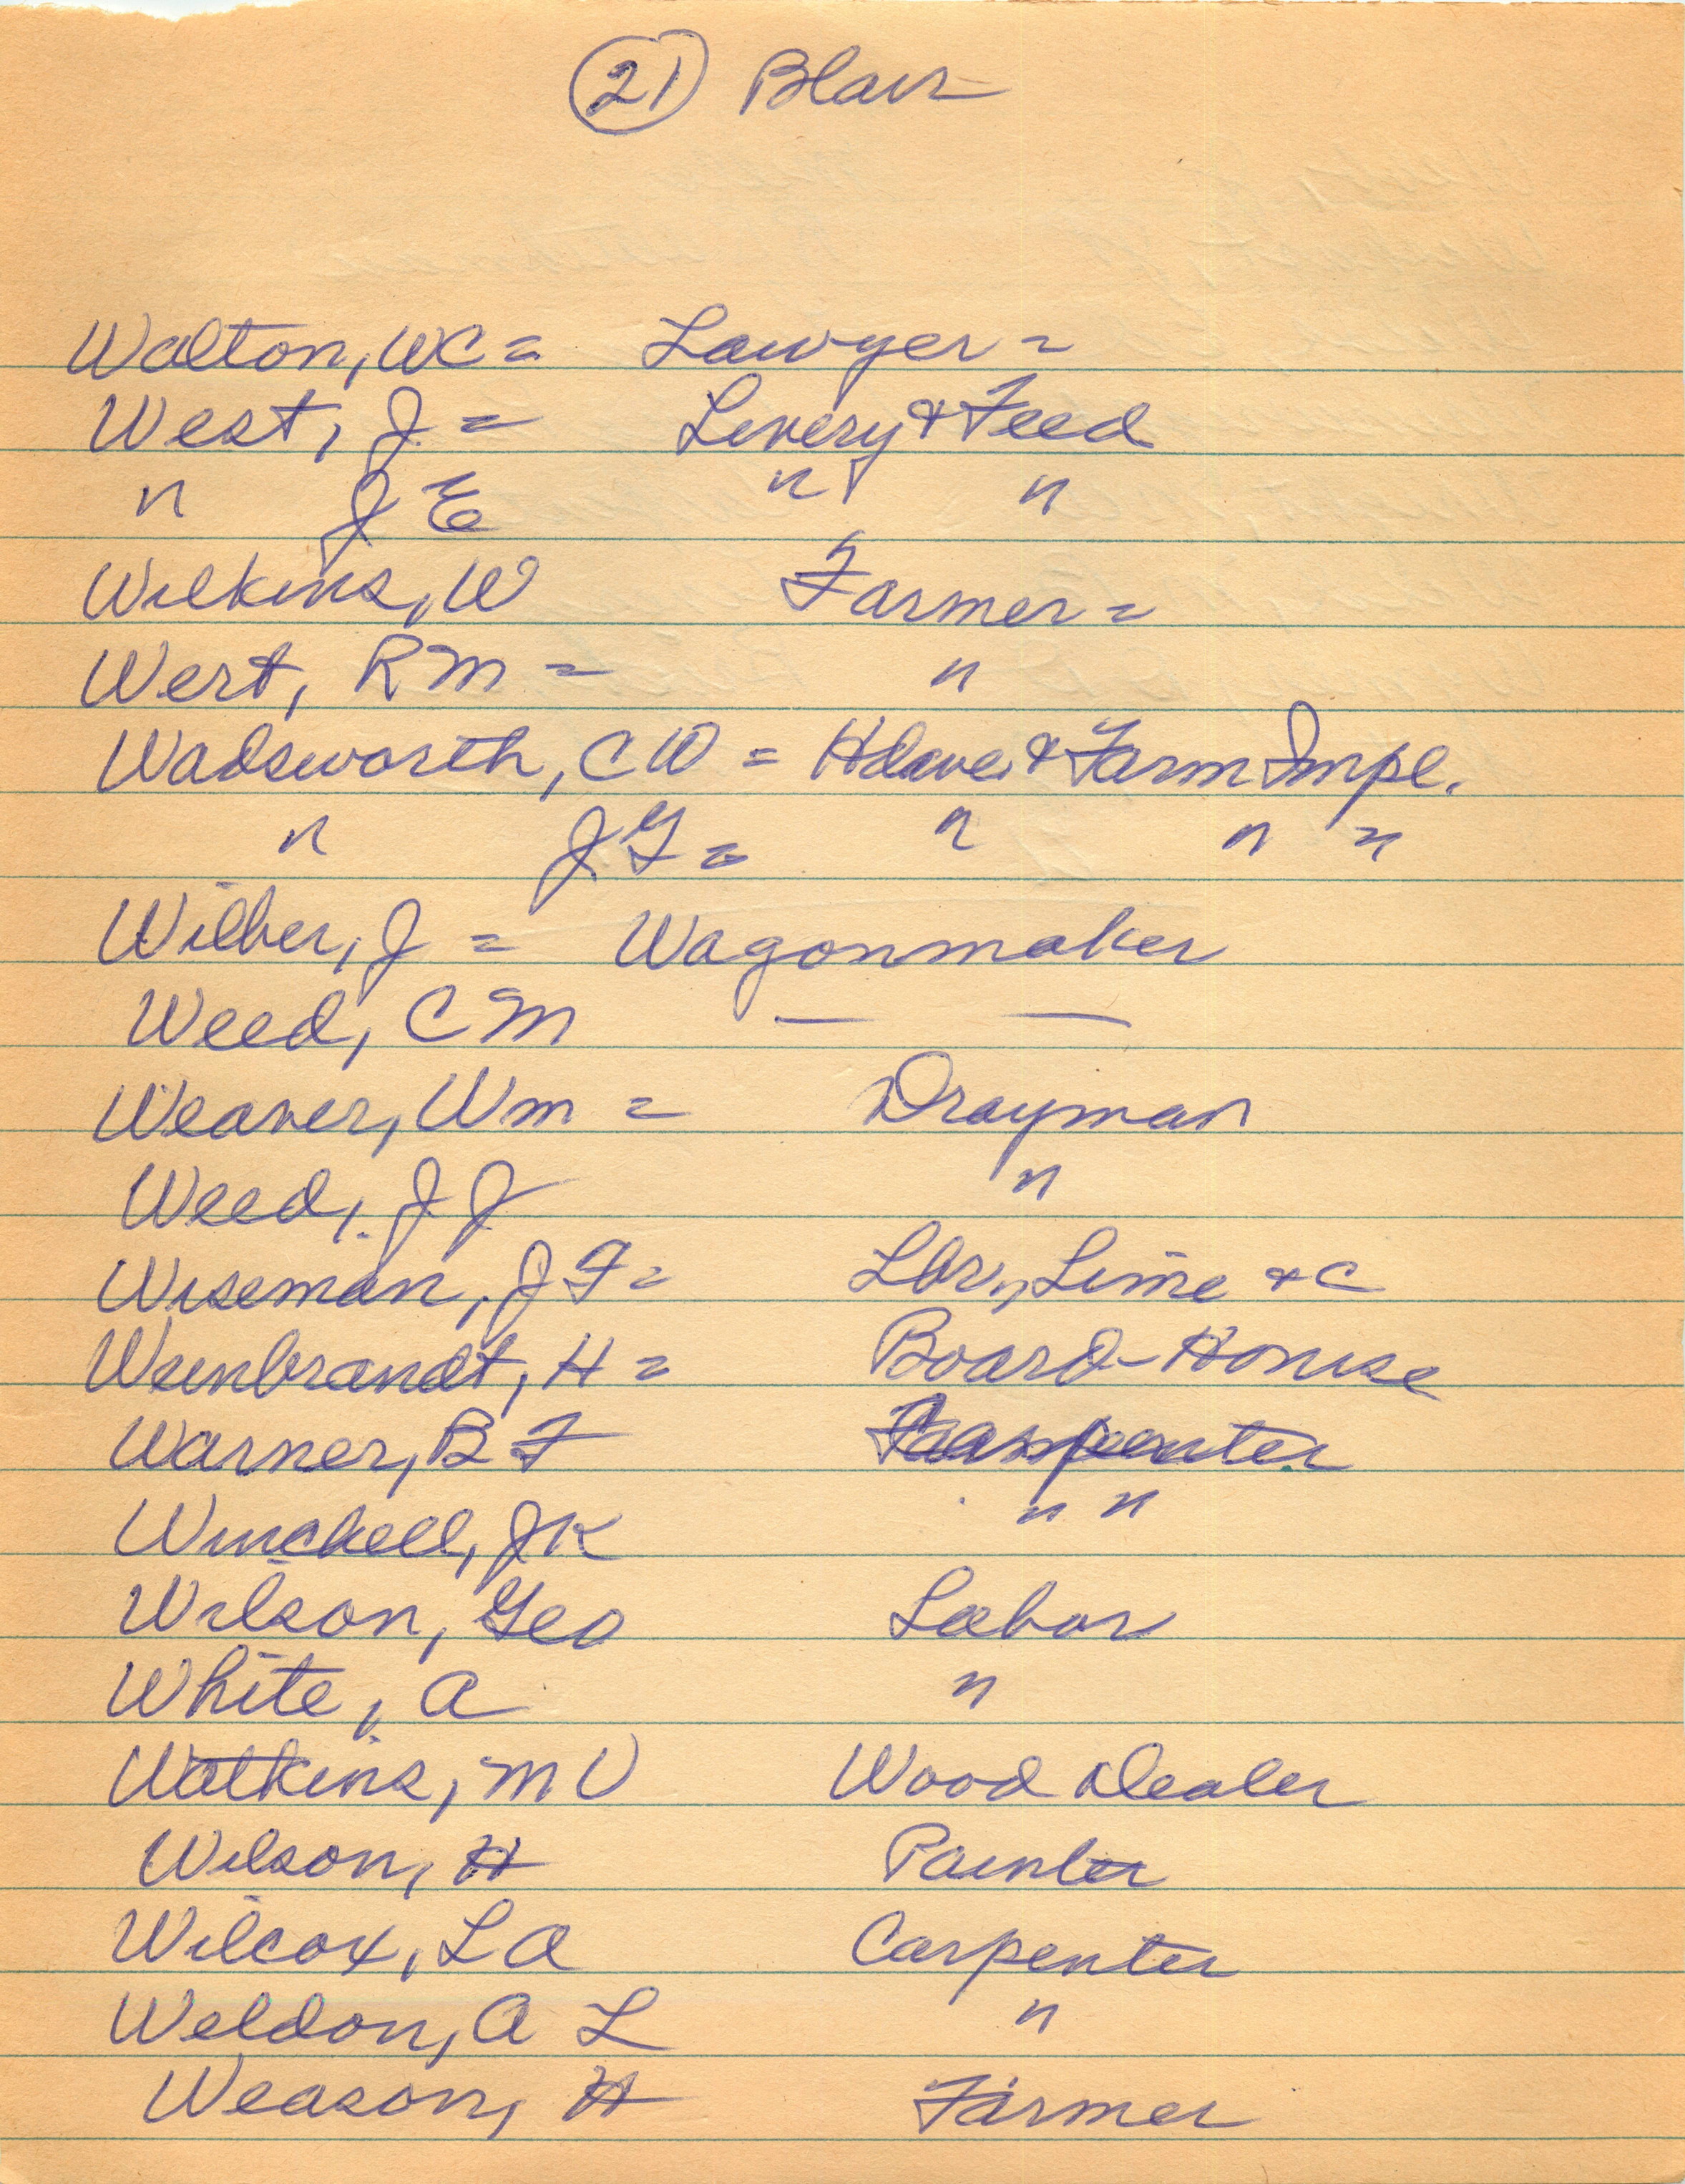 (21) Blair
Walton, WC = Lawyer =
West, J = Livery & Feed
" J E " "
Wilkins, W Farmer =
Wert, RM = "
Wadsworth, C W = Hdware & Farm Impl.
" J G = " " "
Wilber, J = Wagonmaker
Weed, C M — —
Weaver, Wm = Drayman
Weed, J J "
Wiseman, J F = Lbr, Lime & C
Weinbrandt, H = Board-House
Warner, B F Carpenter
Winchell, JK " "
Wilson, Geo Labor
White, A "
Watkins, M V Wood Dealer
Wilson, H Painter
Wilcox, L A Carpenter
Weldon, A L "
Weason, H Farmer